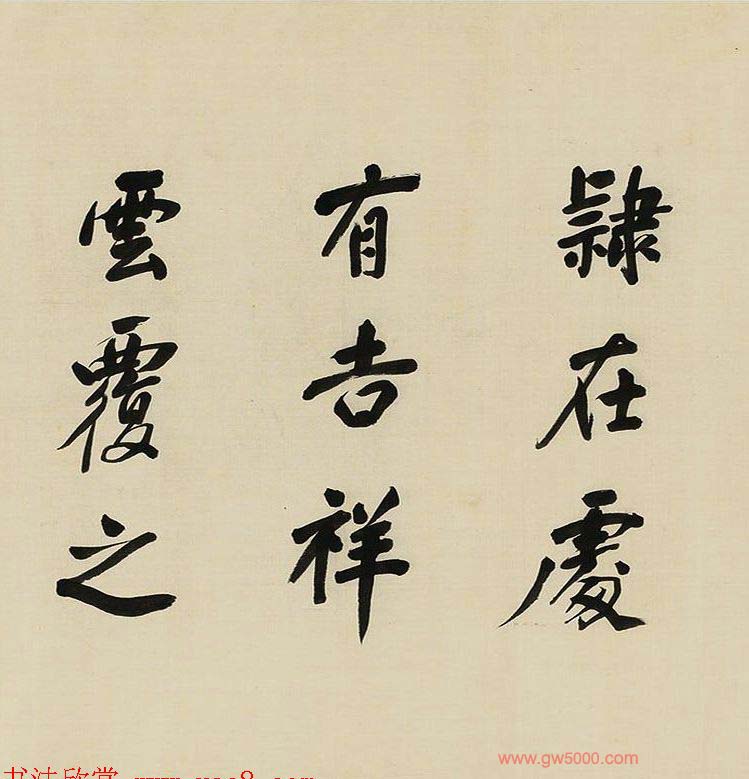 隸在處
有吉祥
雲覆之
www.gw5000.com
书法欣赏